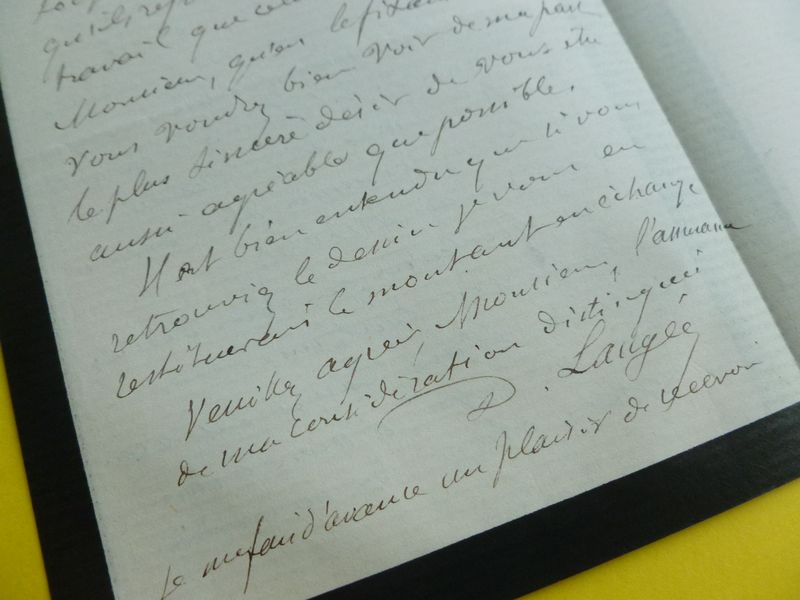 travail que
Monsieur, qu'en le fixant
vous voudrez bien voir de ma part
le plus sincère désir de vous être
aussi agréable que possible.
Il est bien entendu que si vous
retrouviez le dessin je vous en
restituerais le montant en échange
Veuillez agréer, Monsieur, l'assurance
de ma considération distinguée
D. Laugée
Je me fais d'avance un plaisir de recevoir